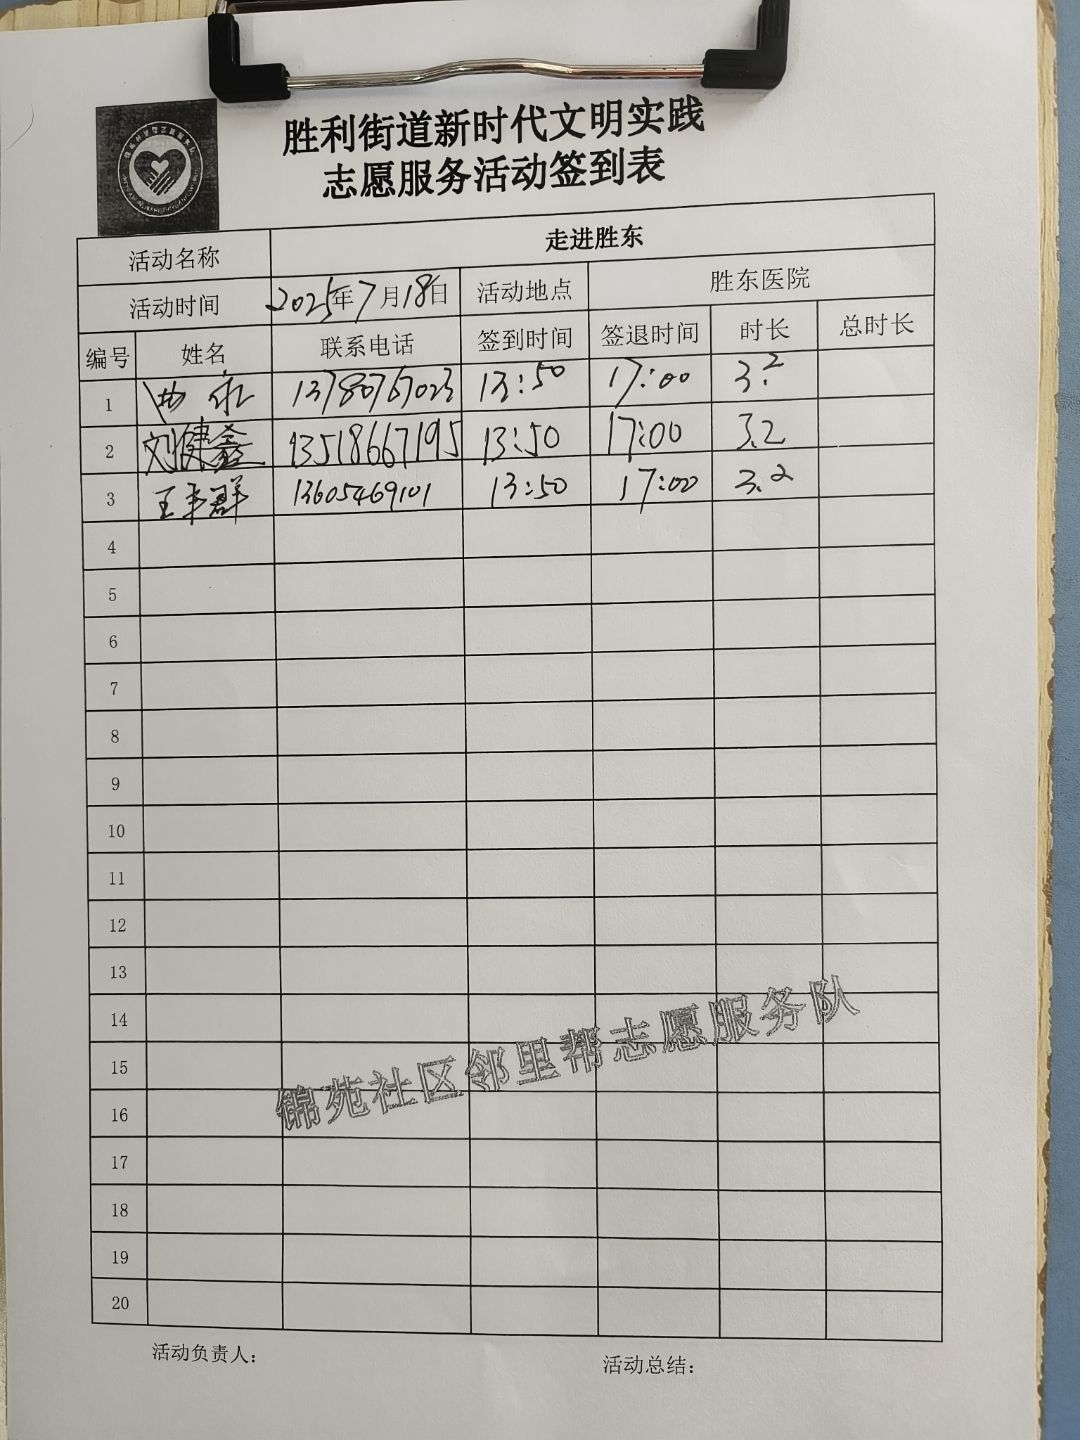 胜利街道新时代文明实践
志愿服务活动签到表
活动名称 走进胜东
活动时间 2025年7月18日 活动地点 胜东医院
编号 姓名 联系电话 签到时间 签退时间 时长 总时长
1 永 13780767023 13:50 17:00 3.2
2 刘健鑫 13518667195 13:50 17:00 3.2
3 王丰群 13605469101 13:50 17:00 3.2
4
5
6
7
8
9
10
11
12
13
14
15
16
17
18
19
20
锦苑社区邻里帮志愿服务队
活动负责人： 活动总结：